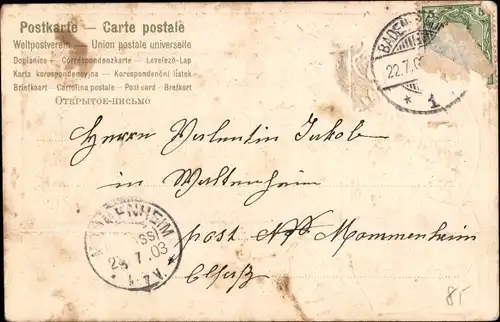 Postkarte – Carte postale
Weltpostverein – Union postale universelle
Dopisnice – Correspondenzkarte – Levelező-Lap
Karta korespondencyjna – Korespondenční lístek
Briefkaart – Cartolina postale – Post card – Brefkort
Открытое-письмо
BADEN
22.7.0
* 1
Herrn Valentin Jakob
in Waltenheim
post Mommenheim
Elsaß
ENHEIM
7.03
85